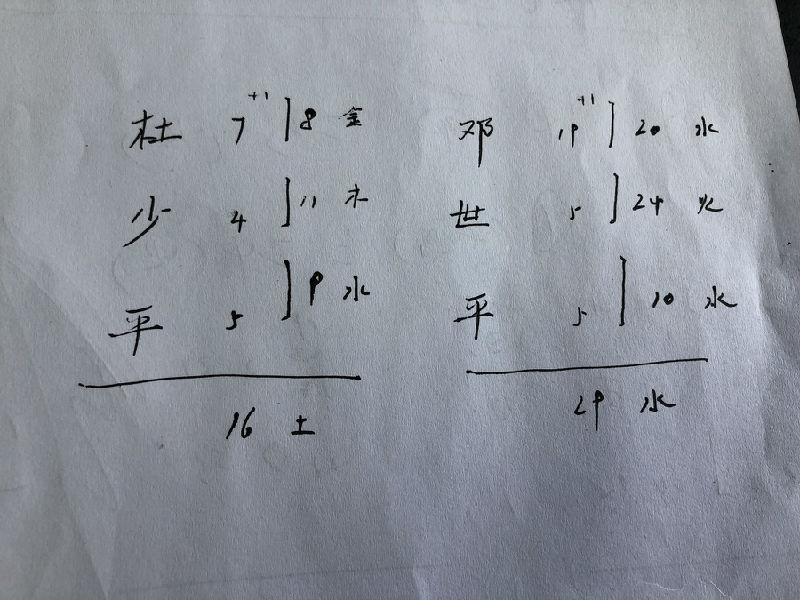 杜 7 +1 8 金
少 4 11 木
平 5 9 水
16 土
邓 19 +1 20 水
世 5 24 火
平 5 10 水
29 水